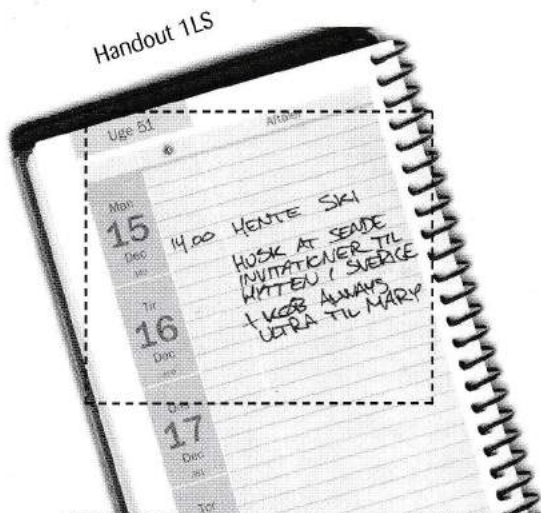 Handout 1LS
Uge 51
Aftaler
Man
15
Dec
14.00 HENTE SKI
HUSK AT SENDE
INVITATIONER TIL
HYTTEN I SVERIGE
+ KØB ALWAYS
ULTRA TIL MARY
Tir
16
Dec
17
Dec
Tor